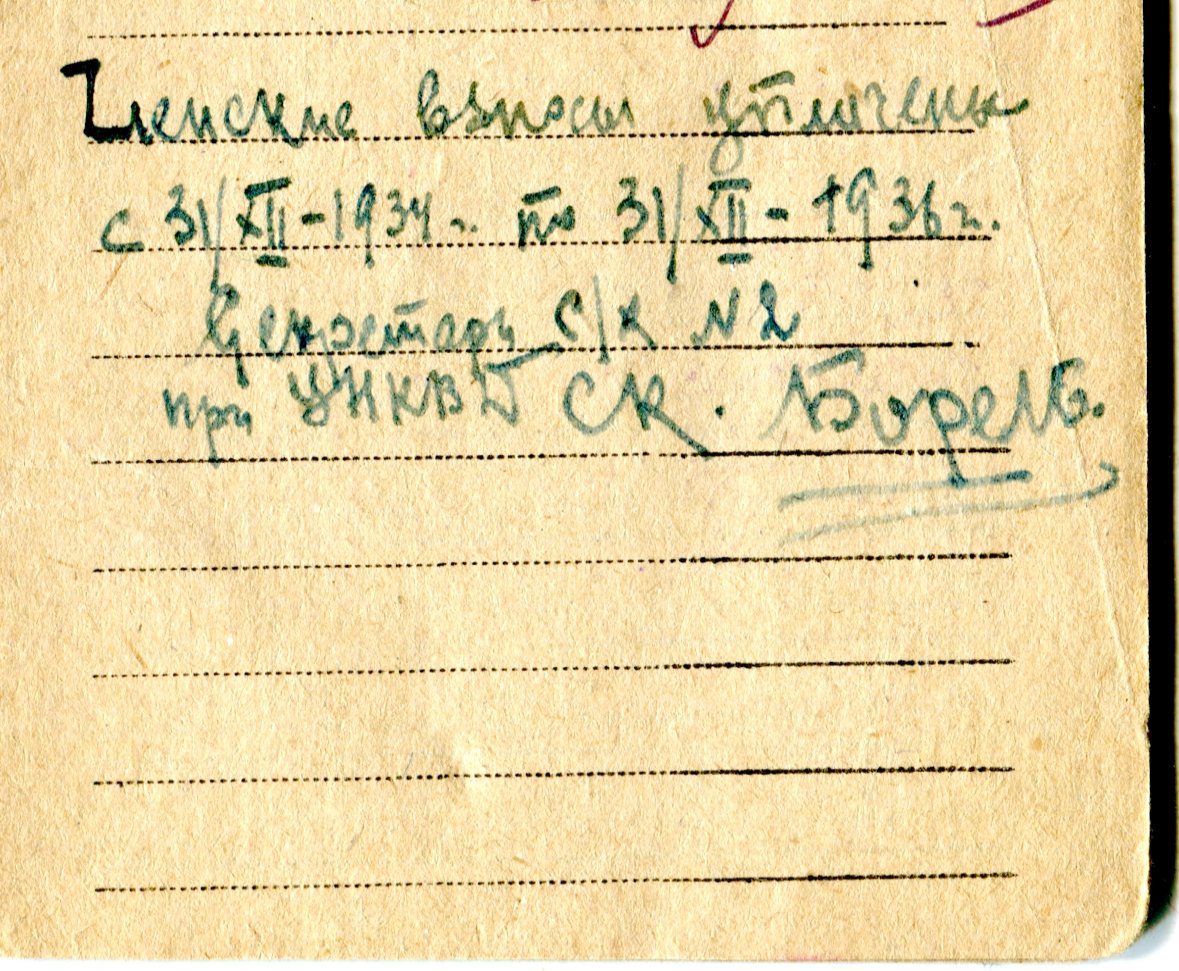 Членские взносы уплачены
с 31/XII-1934 г. по 31/XII-1936 г.
Секретарь С/К №2
при УНКВД СК.